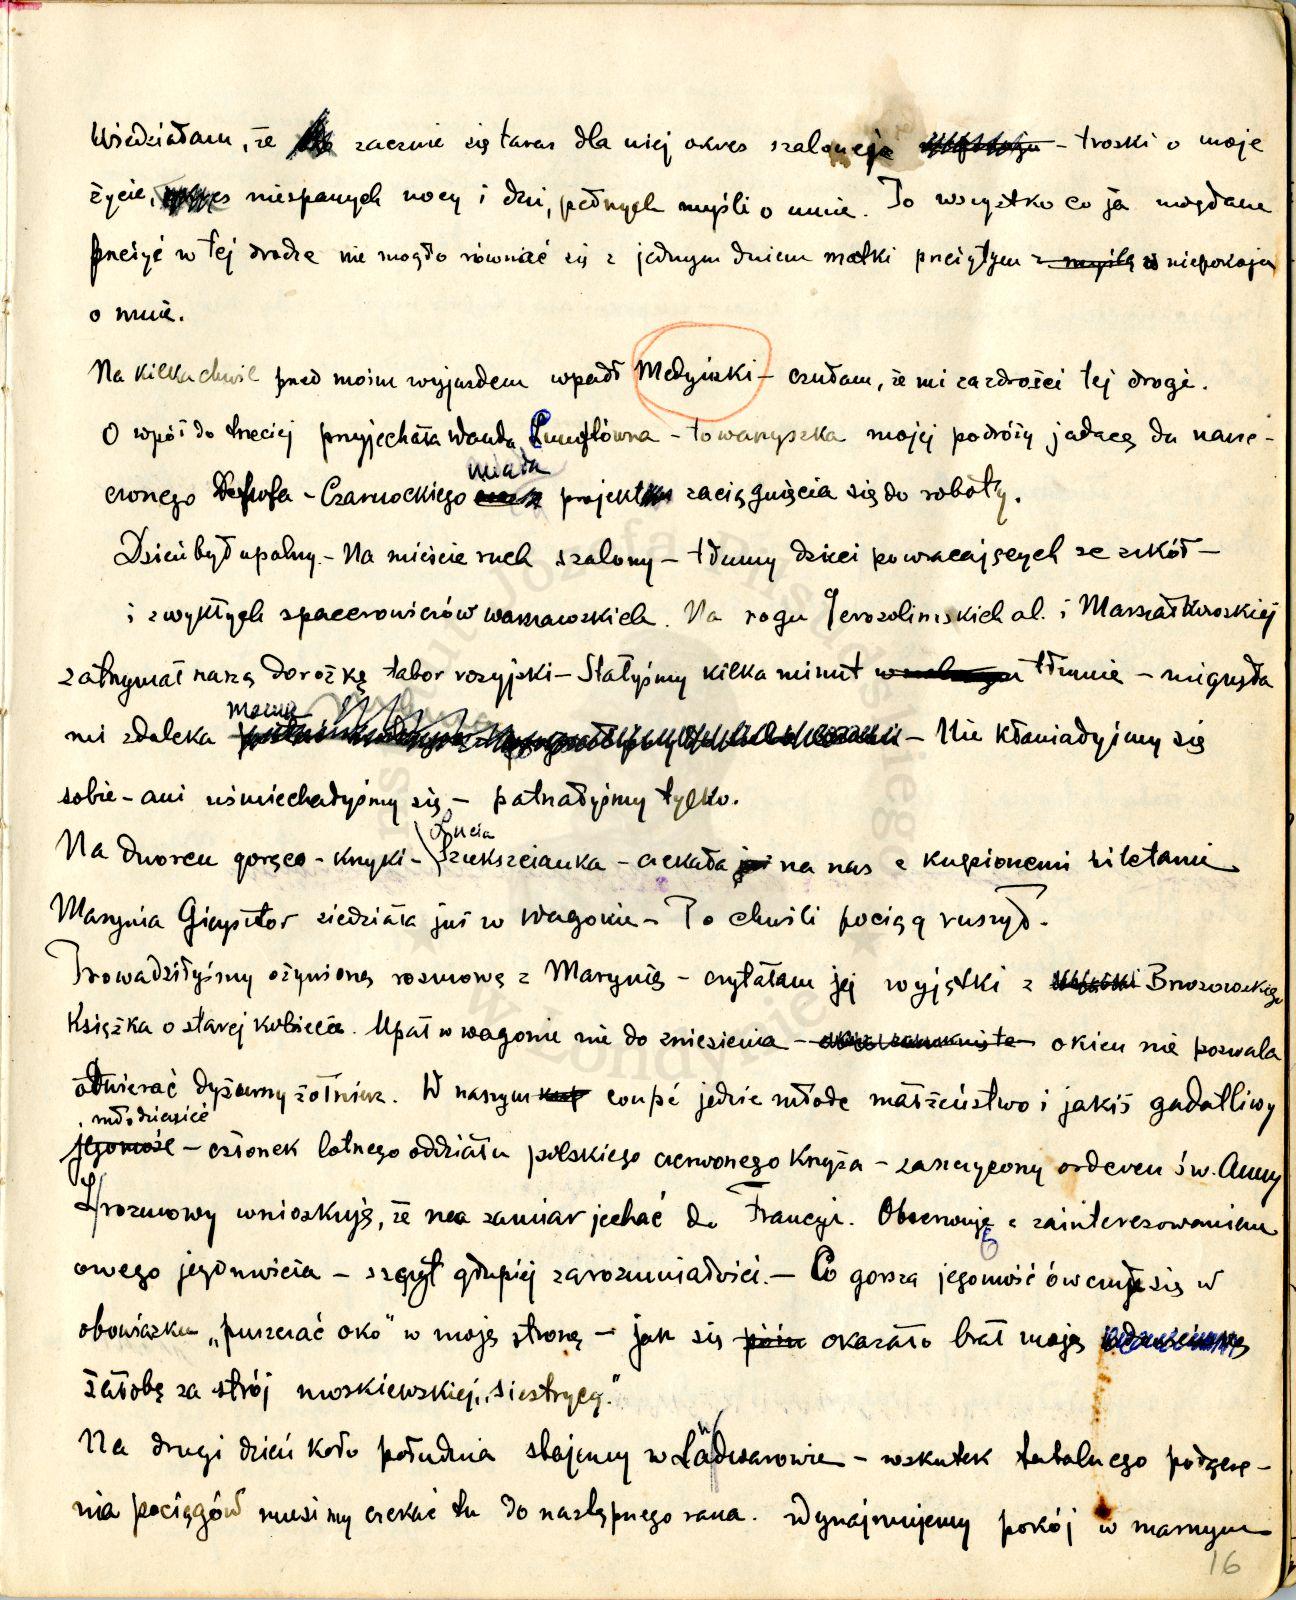 Wiedziałam, że zacznie się teraz dla niej okres szalonej - troski o moje
życie, niespanych nocy i dni, pełnych myśli o mnie. To wszystko co ja mogłam
przeżyć w tej drodze nie mogło równać się z jednym dniem matki przeżytym z niepokoju
o mnie.
Na kilka chwil przed moim wyjazdem wpadł Medyński - czułam, że mi zazdrości tej drogi.
O wpół do trzeciej przyjechała Wanda - towarzyszka mojej podróży jadąca do narze-
czonego - Czarnockiego miała projekt zaciągnięcia się do roboty.
Dzień był upalny. - Na mieście ruch szalony - tłumy dzieci powracających ze szkół -
i zwykłych spacerowiczów warszawskich. Na rogu Jerozolimskich al. i Marszałkowskiej
zatrzymał naszą dorożkę tabor rosyjski - Stałyśmy kilka minut w tłumie - mignęła
mi zdaleka mama - Nie kłaniałyśmy się
sobie - ani uśmiechałyśmy się, - patrzałyśmy tylko.
Na dworcu gorąco - krzyki - Szukszcianka - czekała na nas z kupionemi biletami
Marynia Gieysztor siedziała już w wagonie - Po chwili pociąg ruszył.
Prowadziłyśmy ożywioną rozmowę z Marynią - czytałam jej wyjątki z Brzozowskiego
Książka o starej kobiecie. Upał w wagonie nie do zniesienia - okien nie pozwala
otwierać dyżurny żołnierz. W naszym coupé jedzie młode małżeństwo i jakiś gadatliwy
młodzieniec
jegomość - członek lotnego oddziału polskiego czerwonego Krzyża - zaszczycony orderem św. Anny
Z rozmowy wnioskuję, że ma zamiar jechać do Francyi. Obserwuję z zainteresowaniem
owego jegomościa - szczyt głupiej zarozumiałości. - Co gorsza jegomość ów czuje się w
obowiązku „puszczać oko" w moją stronę - jak się później okazało brał moją
żałobę za strój moskiewskiej „siestrycy."
Na drugi dzień koło południa stajemy w Landwarowie - wskutek fatalnego połącze-
nia pociągów musimy czekać tu do następnego rana. Wynajmujemy pokój w marnym
16